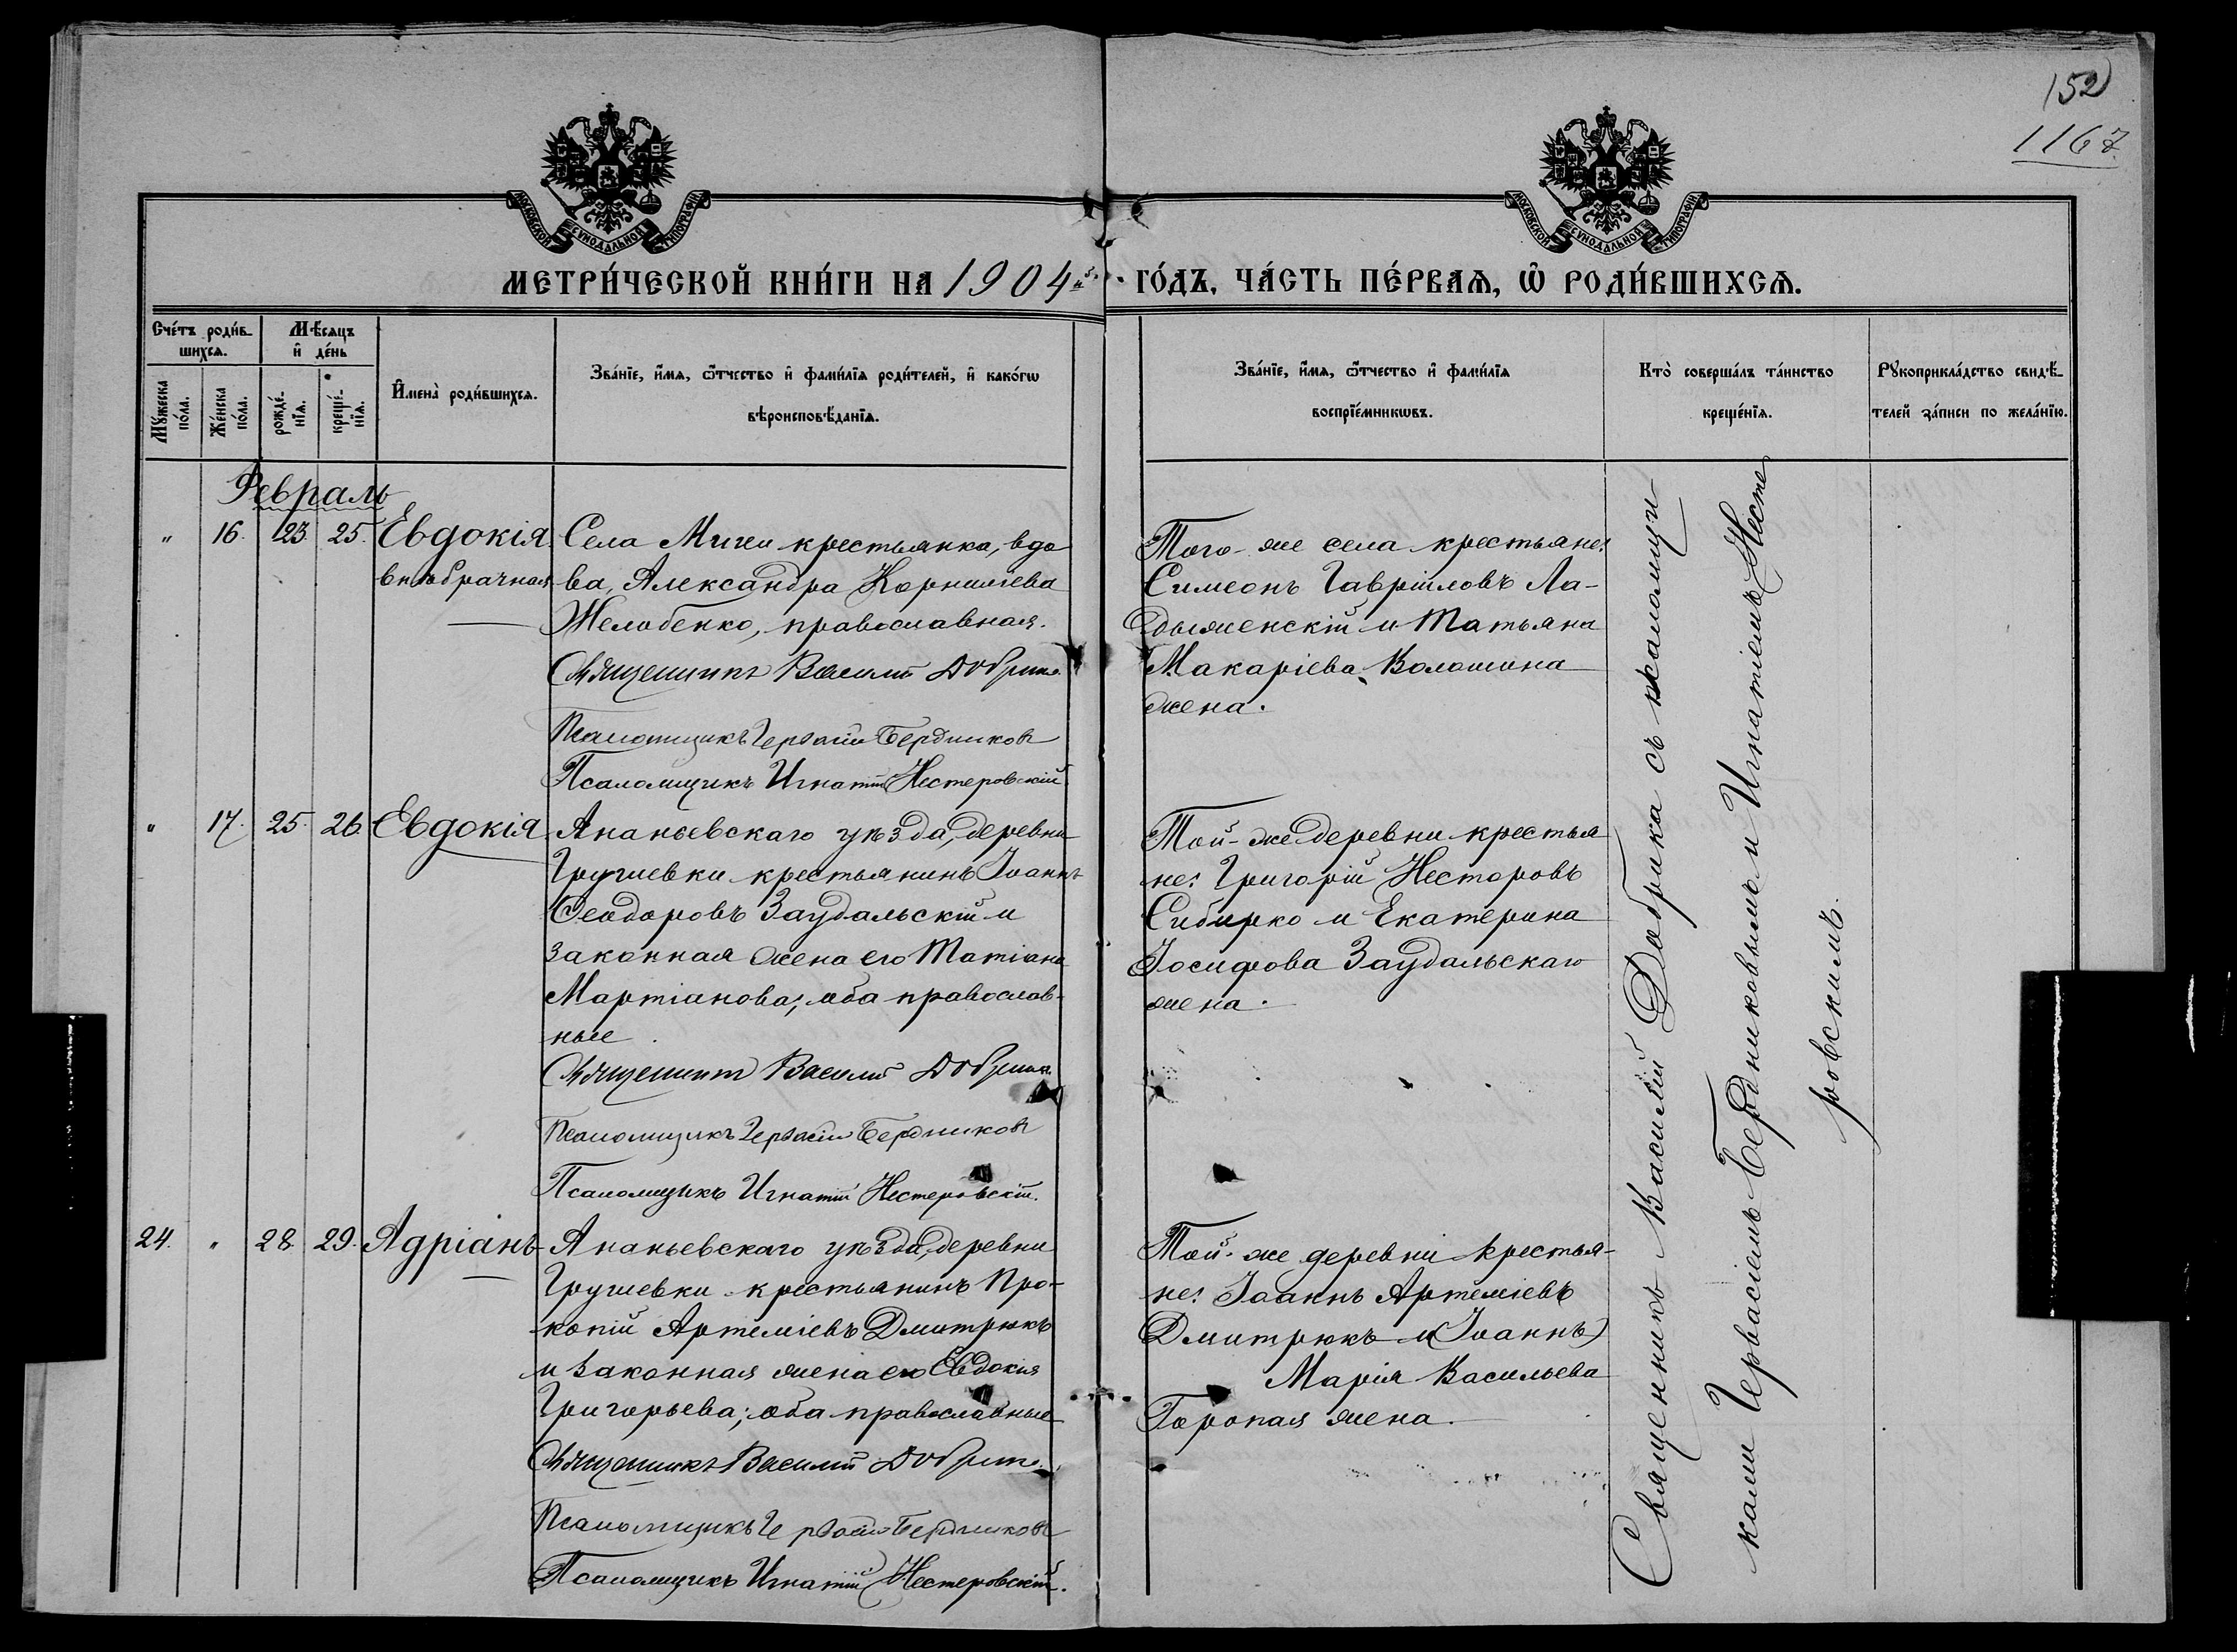 152
1167
МОСКОВСКОЙ СѴНОДАЛЬНОЙ ТИПОГРАФІИ
МОСКОВСКОЙ СѴНОДАЛЬНОЙ ТИПОГРАФІИ
МЕТРИ́ЧЕСКОЙ КНИ́ГИ НА 1904й ГО́ДЪ, ЧА́СТЬ ПЕ́РВАЯ, Ѡ҆ РОДИ́ВШИХСЯ.
Сче́тъ роди́в-
шихся.
Мѣ́сяцъ
и҆ де́нь
Мꙋ́жеска
по́ла.
Же́нска
по́ла.
рожде́-
нїѧ.
креще́-
нїѧ.
И҆мена̀ роди́вшихся.
Зва́нїе, и҆́мя, ѻ҆́тчество и҆ фами́лїя роди́телей, и҆ како́гѡ
вѣроисповѣ́данїя.
Зва́нїе, и҆́мя, ѻ҆́тчество и҆ фами́лїя
воспрїе́мникѡвъ.
Кто̀ соверша́лъ та́инство
креще́нїя.
Рꙋкоприкла́дство свидѣ́-
телей за́писи по жела́нїю.
Февраль
" 16. 23. 25. Евдокія
внѣбрачная
Села Мигеи крестьянка, вдо
ва, Александра Корниліева
Желобенко, православная.
Священникъ Василій Добрика
Псаломщикъ Гервасій Бердниковъ
Псаломщикъ Игнатій Нестеровскій
Того-же села крестьяне:
Симеонъ Гавріиловъ Ла-
дыженскій и Татьяна
Макаріева, Волошина
жена.
" 17. 25. 26. Евдокія
Ананьевскаго уѣзда, деревни
Грушевки крестьянинъ Іоаннъ
Ѳеодоровъ Заудальскій и
законная жена его Татіана
Мартіанова; оба православ-
ные.
Священникъ Василій Добрика
Псаломщикъ Гервасій Бердниковъ
Псаломщикъ Игнатій Нестеровскій.
Той-же деревни крестья
не: Григорій Несторовъ
Сибирко и Екатерина
Іосифова Заудальскаго
жена.
24. " 28. 29. Адріанъ
Ананьевскаго уѣзда, деревни
Грушевки крестьянинъ Про-
копій Артеміевъ Дмитрюкъ
и законная жена его Евдокія
Григорьева; оба православные
Священникъ Василій Добрика
Псаломщикъ Гервасій Бердниковъ
Псаломщикъ Игнатій Нестеровскій.
Той-же деревни крестья-
не: Іоаннъ Артеміевъ
Дмитрюкъ и (Іоаннъ)
Марія Васильева
жена.
Священникъ Василій Добрика съ псаломщи-
ками Гервасіемъ Бердниковымъ и Игнатіемъ Несте
ровскимъ.